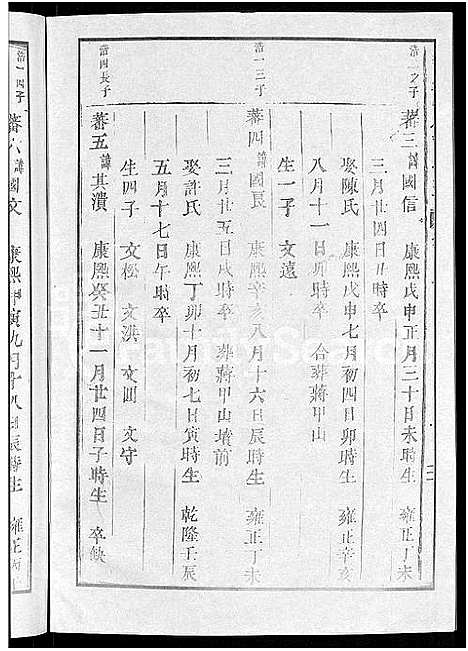 浩一次子
蕃三 諱國信 康熙戊申正月三十日未時生 雍正丁未
三月廿四日丑時卒
娶陳氏 康熙戊申七月初四日卯時生 雍正辛亥
八月十一日卯時卒 合葬蔣甲山
生一子 文遠
浩一三子
蕃四 諱國長 康熙辛亥八月十六日辰時生 雍正丁未
三月廿五日戌時卒 葬蔣甲山墳前
娶許氏 康熙丁卯十月初七日寅時生 乾隆壬辰
五月十七日午時卒
生四子 文松 文洪 文回 文守
浩四長子
蕃五 諱其潰 康熙癸丑十一月廿四日子時生 卒缺
浩一四子
蕃六 諱國文 康熙甲寅九月十八日辰時生 雍正